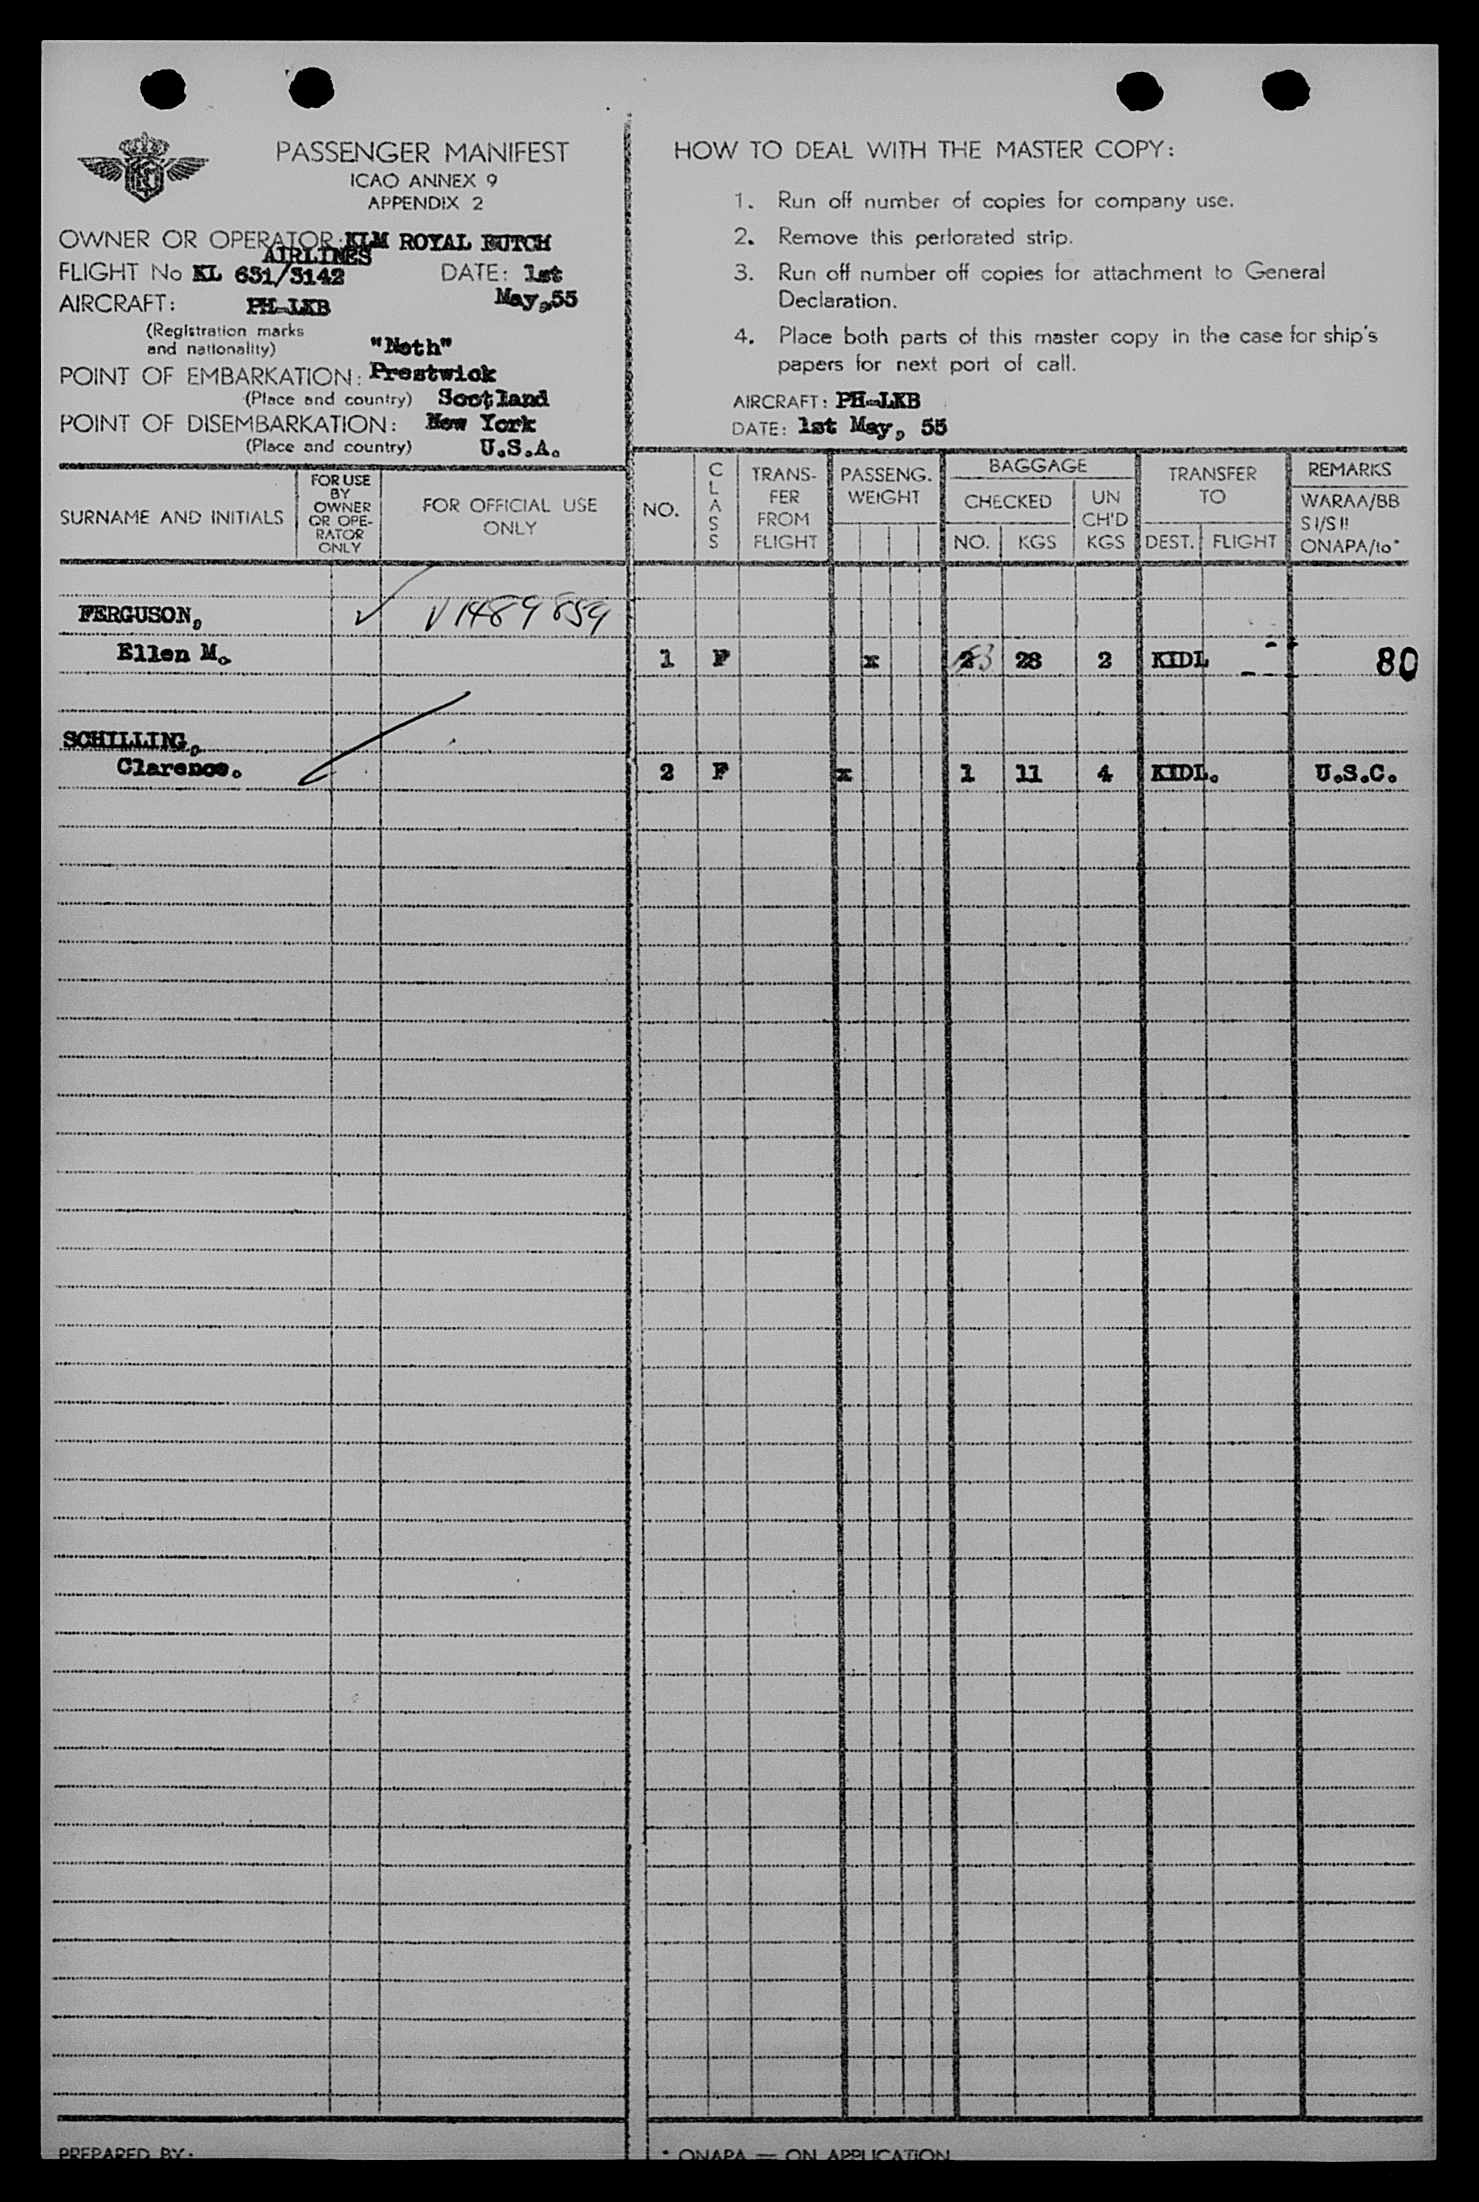 PASSENGER MANIFEST
ICAO ANNEX 9
APPENDIX 2
OWNER OR OPERATOR: KLM ROYAL DUTCH
AIRLINES
FLIGHT No KL 631/3142 DATE: 1st
AIRCRAFT: PH-LKB May,55
(Registration marks
and nationality) "Neth"
POINT OF EMBARKATION: Prestwick
(Place and country) Scotland
POINT OF DISEMBARKATION: New York
(Place and country) U.S.A.
HOW TO DEAL WITH THE MASTER COPY:
1. Run off number of copies for company use.
2. Remove this perforated strip.
3. Run off number off copies for attachment to General
Declaration.
4. Place both parts of this master copy in the case for ship's
papers for next port of call.
AIRCRAFT: PH-LKB
DATE: 1st May, 55
SURNAME AND INITIALS
FOR USE
BY
OWNER
OR OPE-
RATOR
ONLY
FOR OFFICIAL USE
ONLY
NO.
CLASS
TRANS-
FER
FROM
FLIGHT
PASSENG.
WEIGHT
BAGGAGE
CHECKED
NO. KGS
UN
CH'D
KGS
TRANSFER
TO
DEST. FLIGHT
REMARKS
WARAA/BB
SI/SII
ONAPA/to*
FERGUSON, V1489859
Ellen M. 1 F x 2 28 2 KIDL 80
SCHILLING,
Clarence. 2 F x 1 11 4 KIDL. U.S.C.
PREPARED BY:
* ONAPA — ON APPLICATION